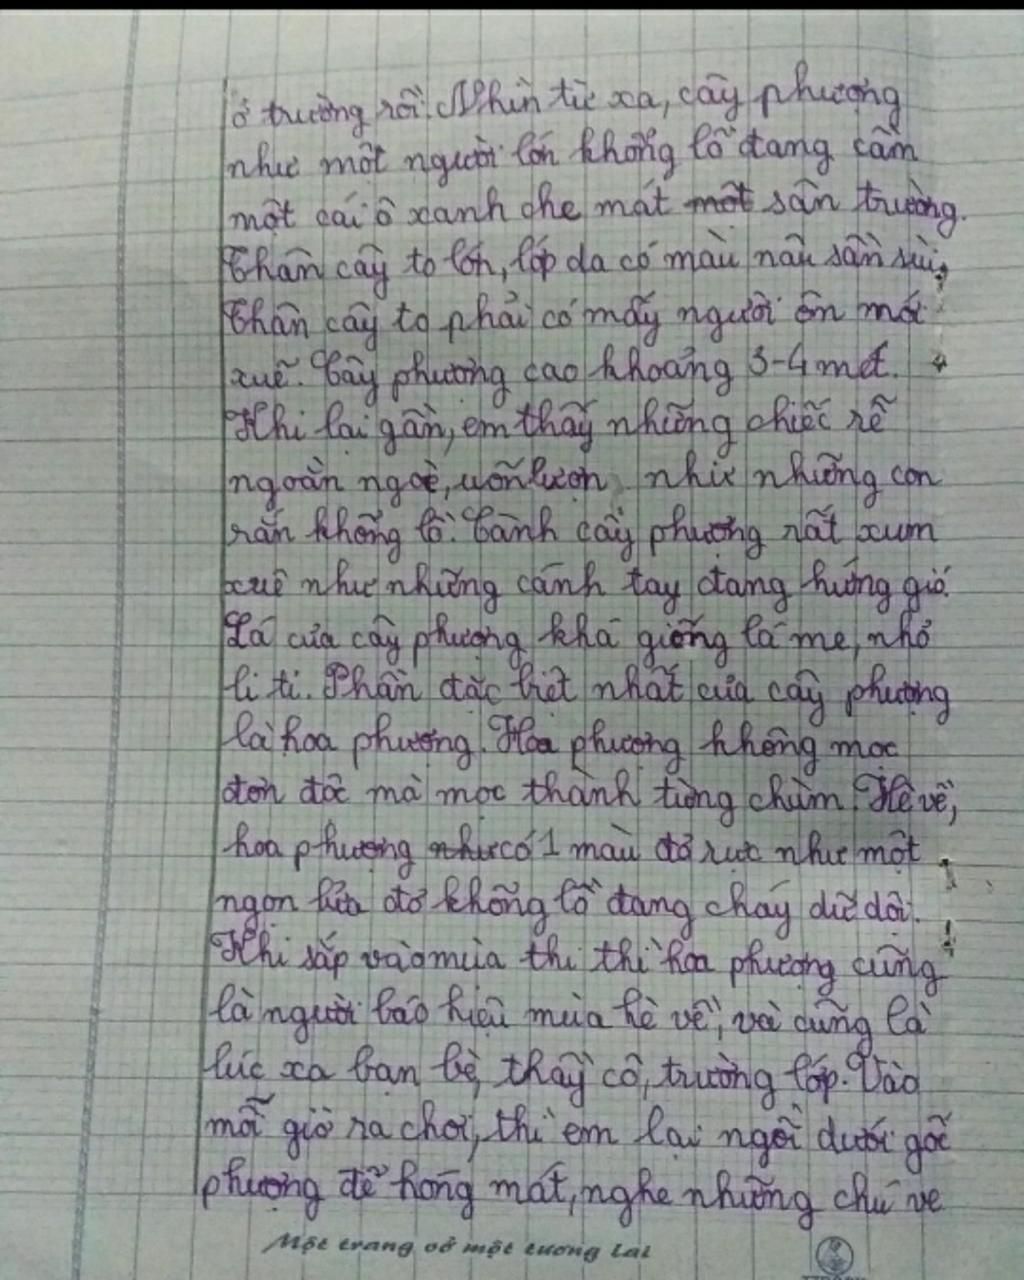 ở trường rồi. Nhìn từ xa, cây phượng
như một người lớn khổng lồ đang cầm
một cái ô xanh che mát một sân trường.
Thân cây to lớn, lớp da có màu nâu sần sùi,
thân cây to phải có mấy người ôm mới
xuể. Cây phượng cao khoảng 3-4 mét.
Khi lại gần, em thấy những chiếc rễ
ngoằn ngoè, uốn lượn như những con
rắn khổng lồ. Cành cây phượng rất xum
xuê như những cánh tay đang hứng gió.
Lá của cây phượng khá giống lá me, nhỏ
li ti. Phần đặc biệt nhất của cây phượng
là hoa phượng. Hoa phượng không mọc
đơn độc mà mọc thành từng chùm. Hè về,
hoa phượng như có 1 màu đỏ rực như một
ngọn lửa đỏ khổng lồ đang cháy dữ dội.
Khi sắp vào mùa thi thì hoa phượng cũng
là người báo hiệu mùa hè về, và cũng là
lúc xa bạn bè, thầy cô, trường lớp. Vào
mỗi giờ ra chơi, thì em lại ngồi dưới gốc
phượng để hóng mát, nghe những chú ve
Một trang vở một tương lai